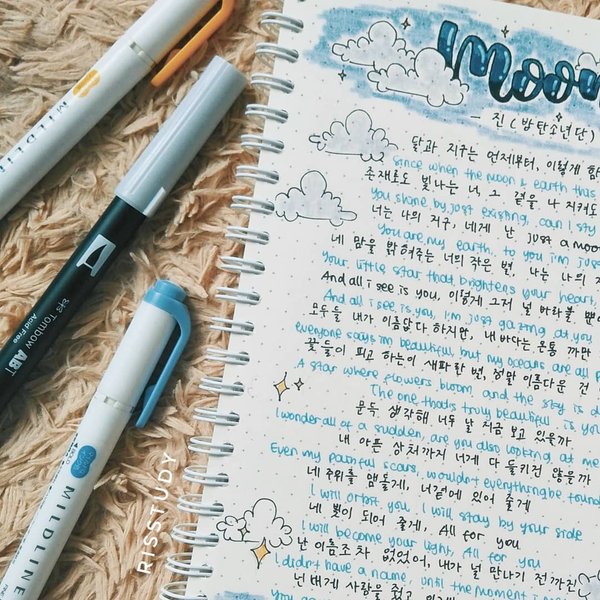 Moon
- 진 (방탄소년단)
달과 지구는 언제부터, 이렇게 함
since when the moon & earth has
존재로도 빛나는 너, 그 곁을 나 지켜도
You shine by just existing, can I stay
너는 나의 지구, 네게 난 just a moon
You are my earth, to you I'm just
네 맘을 밝혀주는 너의 작은 별, 나는 나의
Your little star that brightens your heart,
And all I see is you, 이렇게 그저 널 바라볼 뿐이
And all I see is you, I'm just gazing at you
모두들 내가 아름답다 하지만, 내 바다는 온통 까만
everyone says I'm beautiful, but my oceans are all
꽃들이 피고 하늘이 새파란 별, 정말 아름다운 건
A star where flowers bloom, and the sky is
The one that's truly beautiful is you
문득 생각해 너두 날 지금 보고 있을까
I wonder all of a sudden, are you also looking at me
내 아픈 상처까지 너게 다 들키진 않을까
Even my painful scars, wouldn't everything be found
네 주위를 맴돌게, 너 곁에 있어 줄게
I will orbit you, I will stay by your side
네 빛이 되어 줄게, All for you
I will become your light, All for you
난 이름조차 없었어, 내가 널 만나기 전까진
I didn't have a name, until the moment I
넌 내게 사랑을 줬고
You
MILDLINER
Tombow ABT
Acid Free
MILDLINER
RISSTUDY